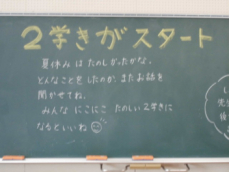 2学きがスタート
夏休みはたのしかったかな。
どんなことをしたのか、またお話を
聞かせてね。
みんなにこにこ たのしい2学きに
なるといいね